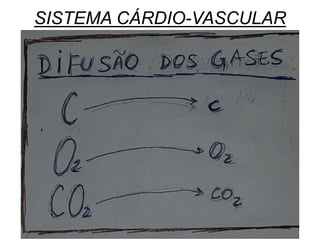 SISTEMA CÁRDIO-VASCULAR
DIFUSÃO DOS GASES
C → c
O₂ → O₂
CO₂ → CO₂